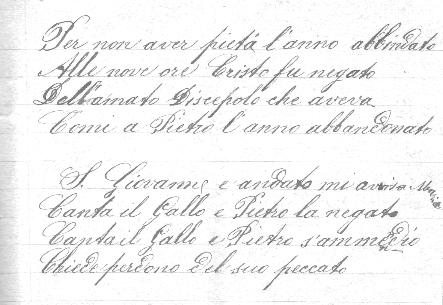 Per non aver pietá l'anno abbindato
Alle nove ore Cristo fu negato
Dell'amato Discepolo che aveva
Comi a Pietro l'anno abbandonato
S. Giovanni e andato mi avvisa Maria
Canta il Gallo e Pietro la negato
Canta il Gallo e Pietro s'ammendió
Chiede perdono del suo peccato